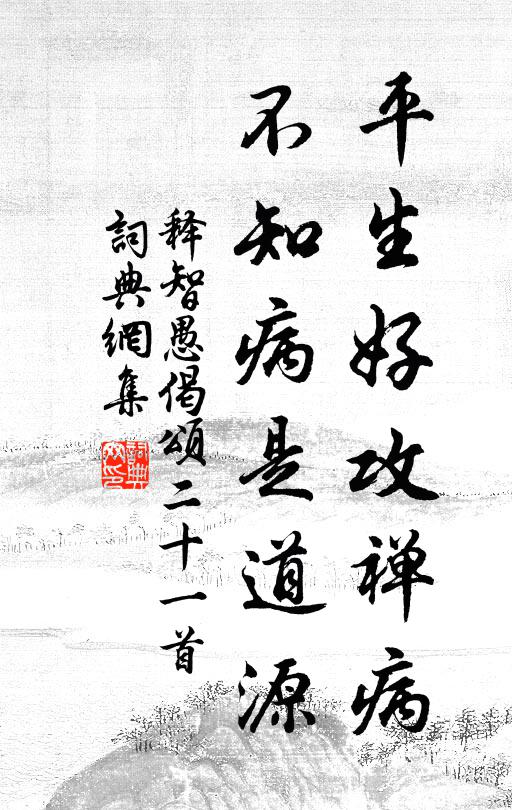 平生好攻禅病
不知病是道源
释智愚偈頌二十一首
詞典網集
詞典網印